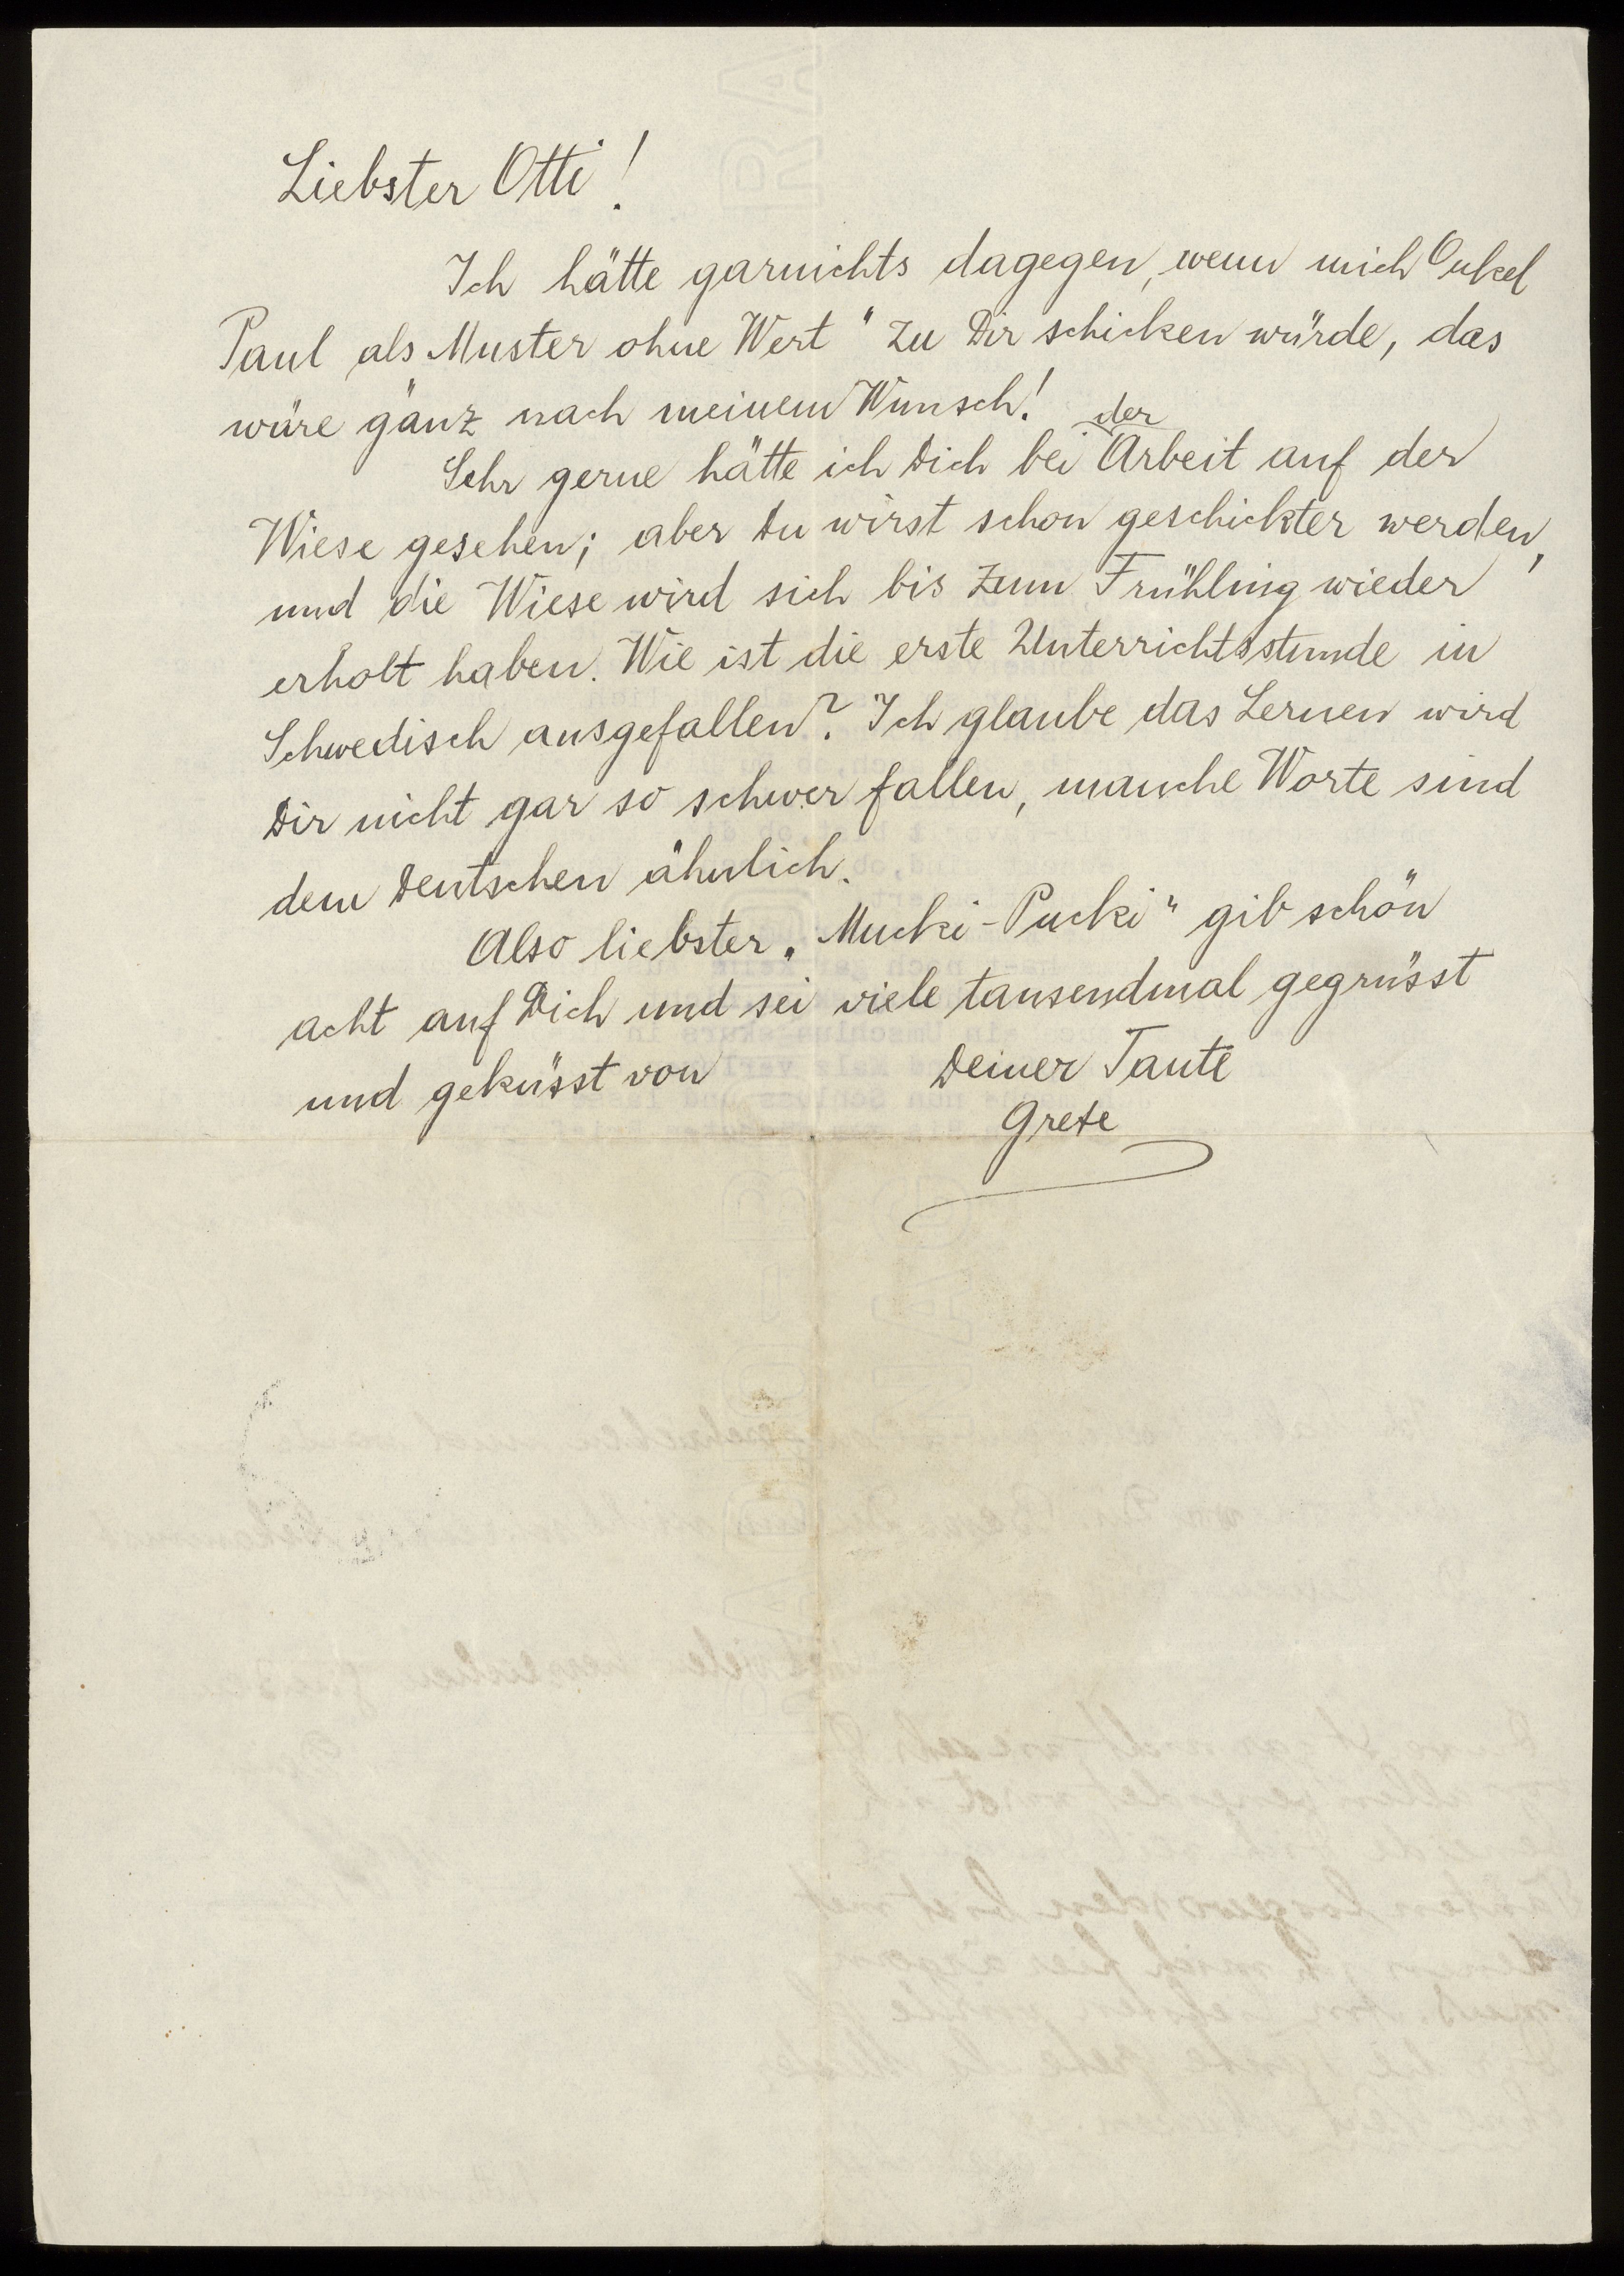 Liebster Otti!
Ich hätte garnichts dagegen, wenn mich Onkel
Paul als „Muster ohne Wert“ zu Dir schicken würde, das
wäre ganz nach meinem Wunsch!
Sehr gerne hätte ich Dich bei der Arbeit auf der
Wiese gesehen; aber Du wirst schon geschickter werden,
und die Wiese wird sich bis zum Frühling wieder
erholt haben. Wie ist die erste Unterrichtsstunde in
Schwedisch ausgefallen? Ich glaube das Lernen wird
Dir nicht gar so schwer fallen, manche Worte sind
dem Deutschen ähnlich.
Also liebster „Mucki-Pucki“ gib schön
acht auf Dich und sei viele tausendmal gegrüsst
und geküsst von Deiner Tante
Grete